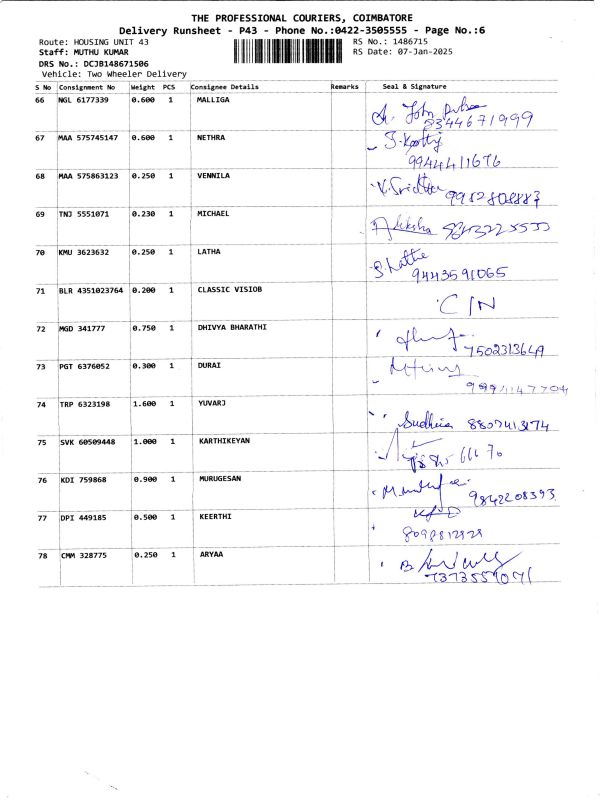 THE PROFESSIONAL COURIERS, COIMBATORE
Delivery Runsheet - P43 - Phone No.:0422-3505555 - Page No.:6
Route: HOUSING UNIT 43
RS No.: 1486715
Staff: MUTHU KUMAR
RS Date: 07-Jan-2025
DRS No.: DCJB148671506
Vehicle: Two Wheeler Delivery
S No Consignment No Weight PCS Consignee Details Remarks Seal & Signature
66 NGL 6177339 0.600 1 MALLIGA John
9344671999
67 MAA 575745147 0.600 1 NETHRA
9944411676
68 MAA 575863123 0.250 1 VENNILA
69 TNJ 5551071 0.230 1 MICHAEL
70 KMU 3623632 0.250 1 LATHA S. Latha
9443591065
71 BLR 4351023764 0.200 1 CLASSIC VISIOB C/N
72 MGD 341777 0.750 1 DHIVYA BHARATHI
7502313649
73 PGT 6376052 0.300 1 DURAI
74 TRP 6323198 1.600 1 YUVARJ Sudhira 8807413174
75 SVK 60509448 1.000 1 KARTHIKEYAN
76 KDI 759868 0.900 1 MURUGESAN
9842208393
77 DPI 449185 0.500 1 KEERTHI
78 CMM 328775 0.250 1 ARYAA